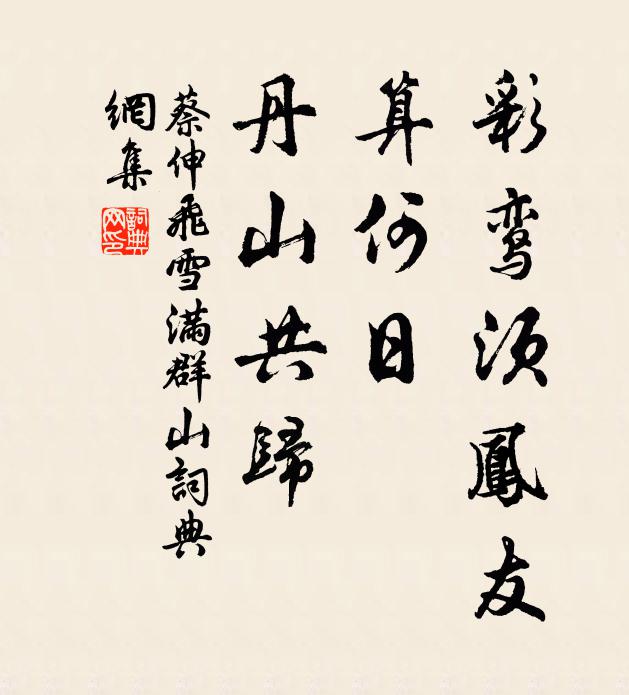 彩鸾须鳳友
算何日
丹山共歸
蔡伸飛雪滿群山詞典
網集
詞典網印